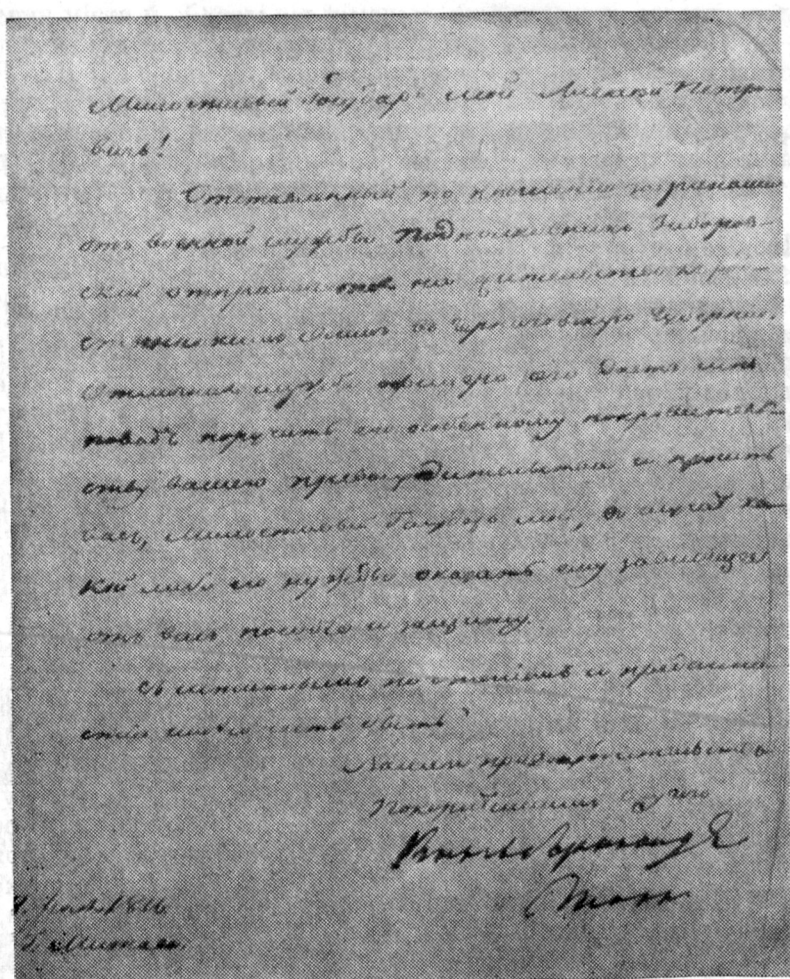 Милостивый Государь мой Алексей Петро-
вичь!
Отставленный по прошению
отъ военной службы подполковникъ Заворов-
скій отправляется на жительство къ род-
ственникамъ своимъ въ Черниговскую Губернію.
Отличная служба офицера сего даетъ мнѣ
поводъ поручить его особенному покровитель-
ству вашего превосходительства и просить
васъ, Милостивый Государь мой, въ случаѣ ка-
кой либо его нужды оказать ему зависящее
отъ васъ пособіе и защиту.
Съ истиннымъ почтеніемъ и преданно-
стію имѣю честь быть
Вашего превосходительства
Покорнѣйшимъ слугою